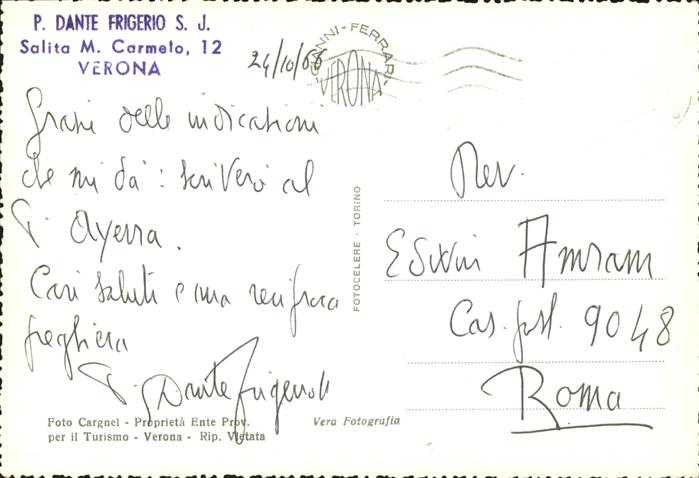 P. DANTE FRIGERIO S. J.
Salita M. Carmelo, 12
VERONA
24/10/66
GIANNI-FERRARI-
VERONA
Grazie delle indicazioni
che mi dà: scriverò al
P. Ayerra.
Cari saluti e una reciproca
preghiera
P. Dante Frigerio SJ
Foto Cargnel - Proprietà Ente Prov.
per il Turismo - Verona - Rip. Vietata
Vera Fotografia
FOTOCELERE - TORINO
Rev.
Edwin Amram
Cas. post. 9048
Roma